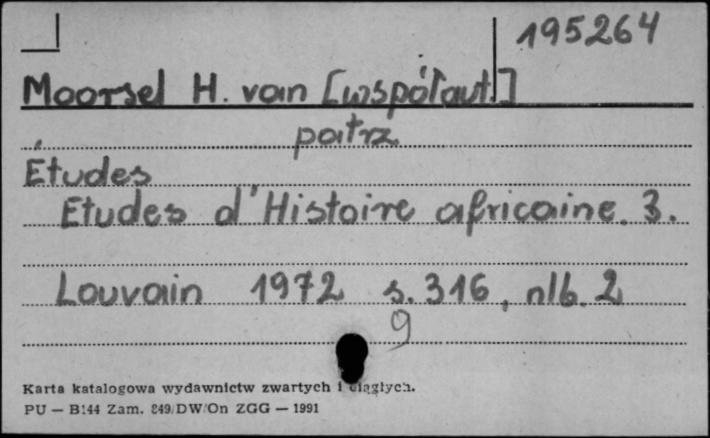 195264
Moorsel H. van [współaut.]
patrz
Études
Etudes d'Histoire africaine. 3.
Louvain 1972 s. 316, nlb. 2
9
Karta katalogowa wydawnictw zwartych i ciągłych.
PU — B144 Zam. 849/DW/On ZGG — 1991